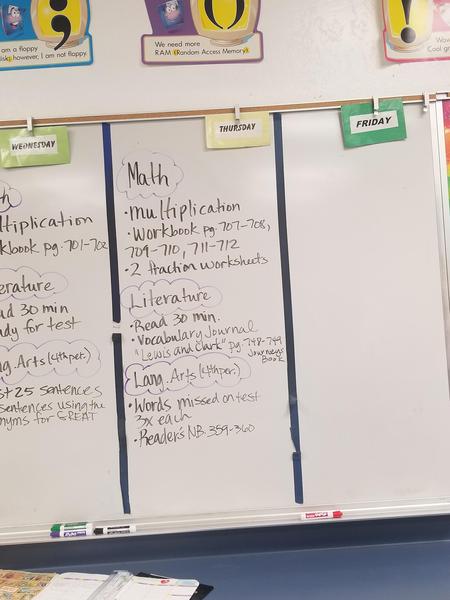 am a floppy
disk; however, I am not floppy.
;
()
We need more
RAM (Random Access Memory).
!
Wow
Cool gr
WEDNESDAY
THURSDAY
FRIDAY
th
ltiplication
kbook pg. 701-702
erature
ad 30 min
dy for test
ng. Arts (4th per.)
st 25 sentences
sentences using the
nyms for GREAT
Math
• multiplication
• Workbook pg. 707-708,
709-710, 711-712
• 2 fraction worksheets
Literature
• Read 30 min.
• Vocabulary Journal
"Lewis and Clark" pg. 748-749
Journeys
Book
Lang. Arts (4th per.)
• Words missed on test
3x each
• Reader's NB 359-360